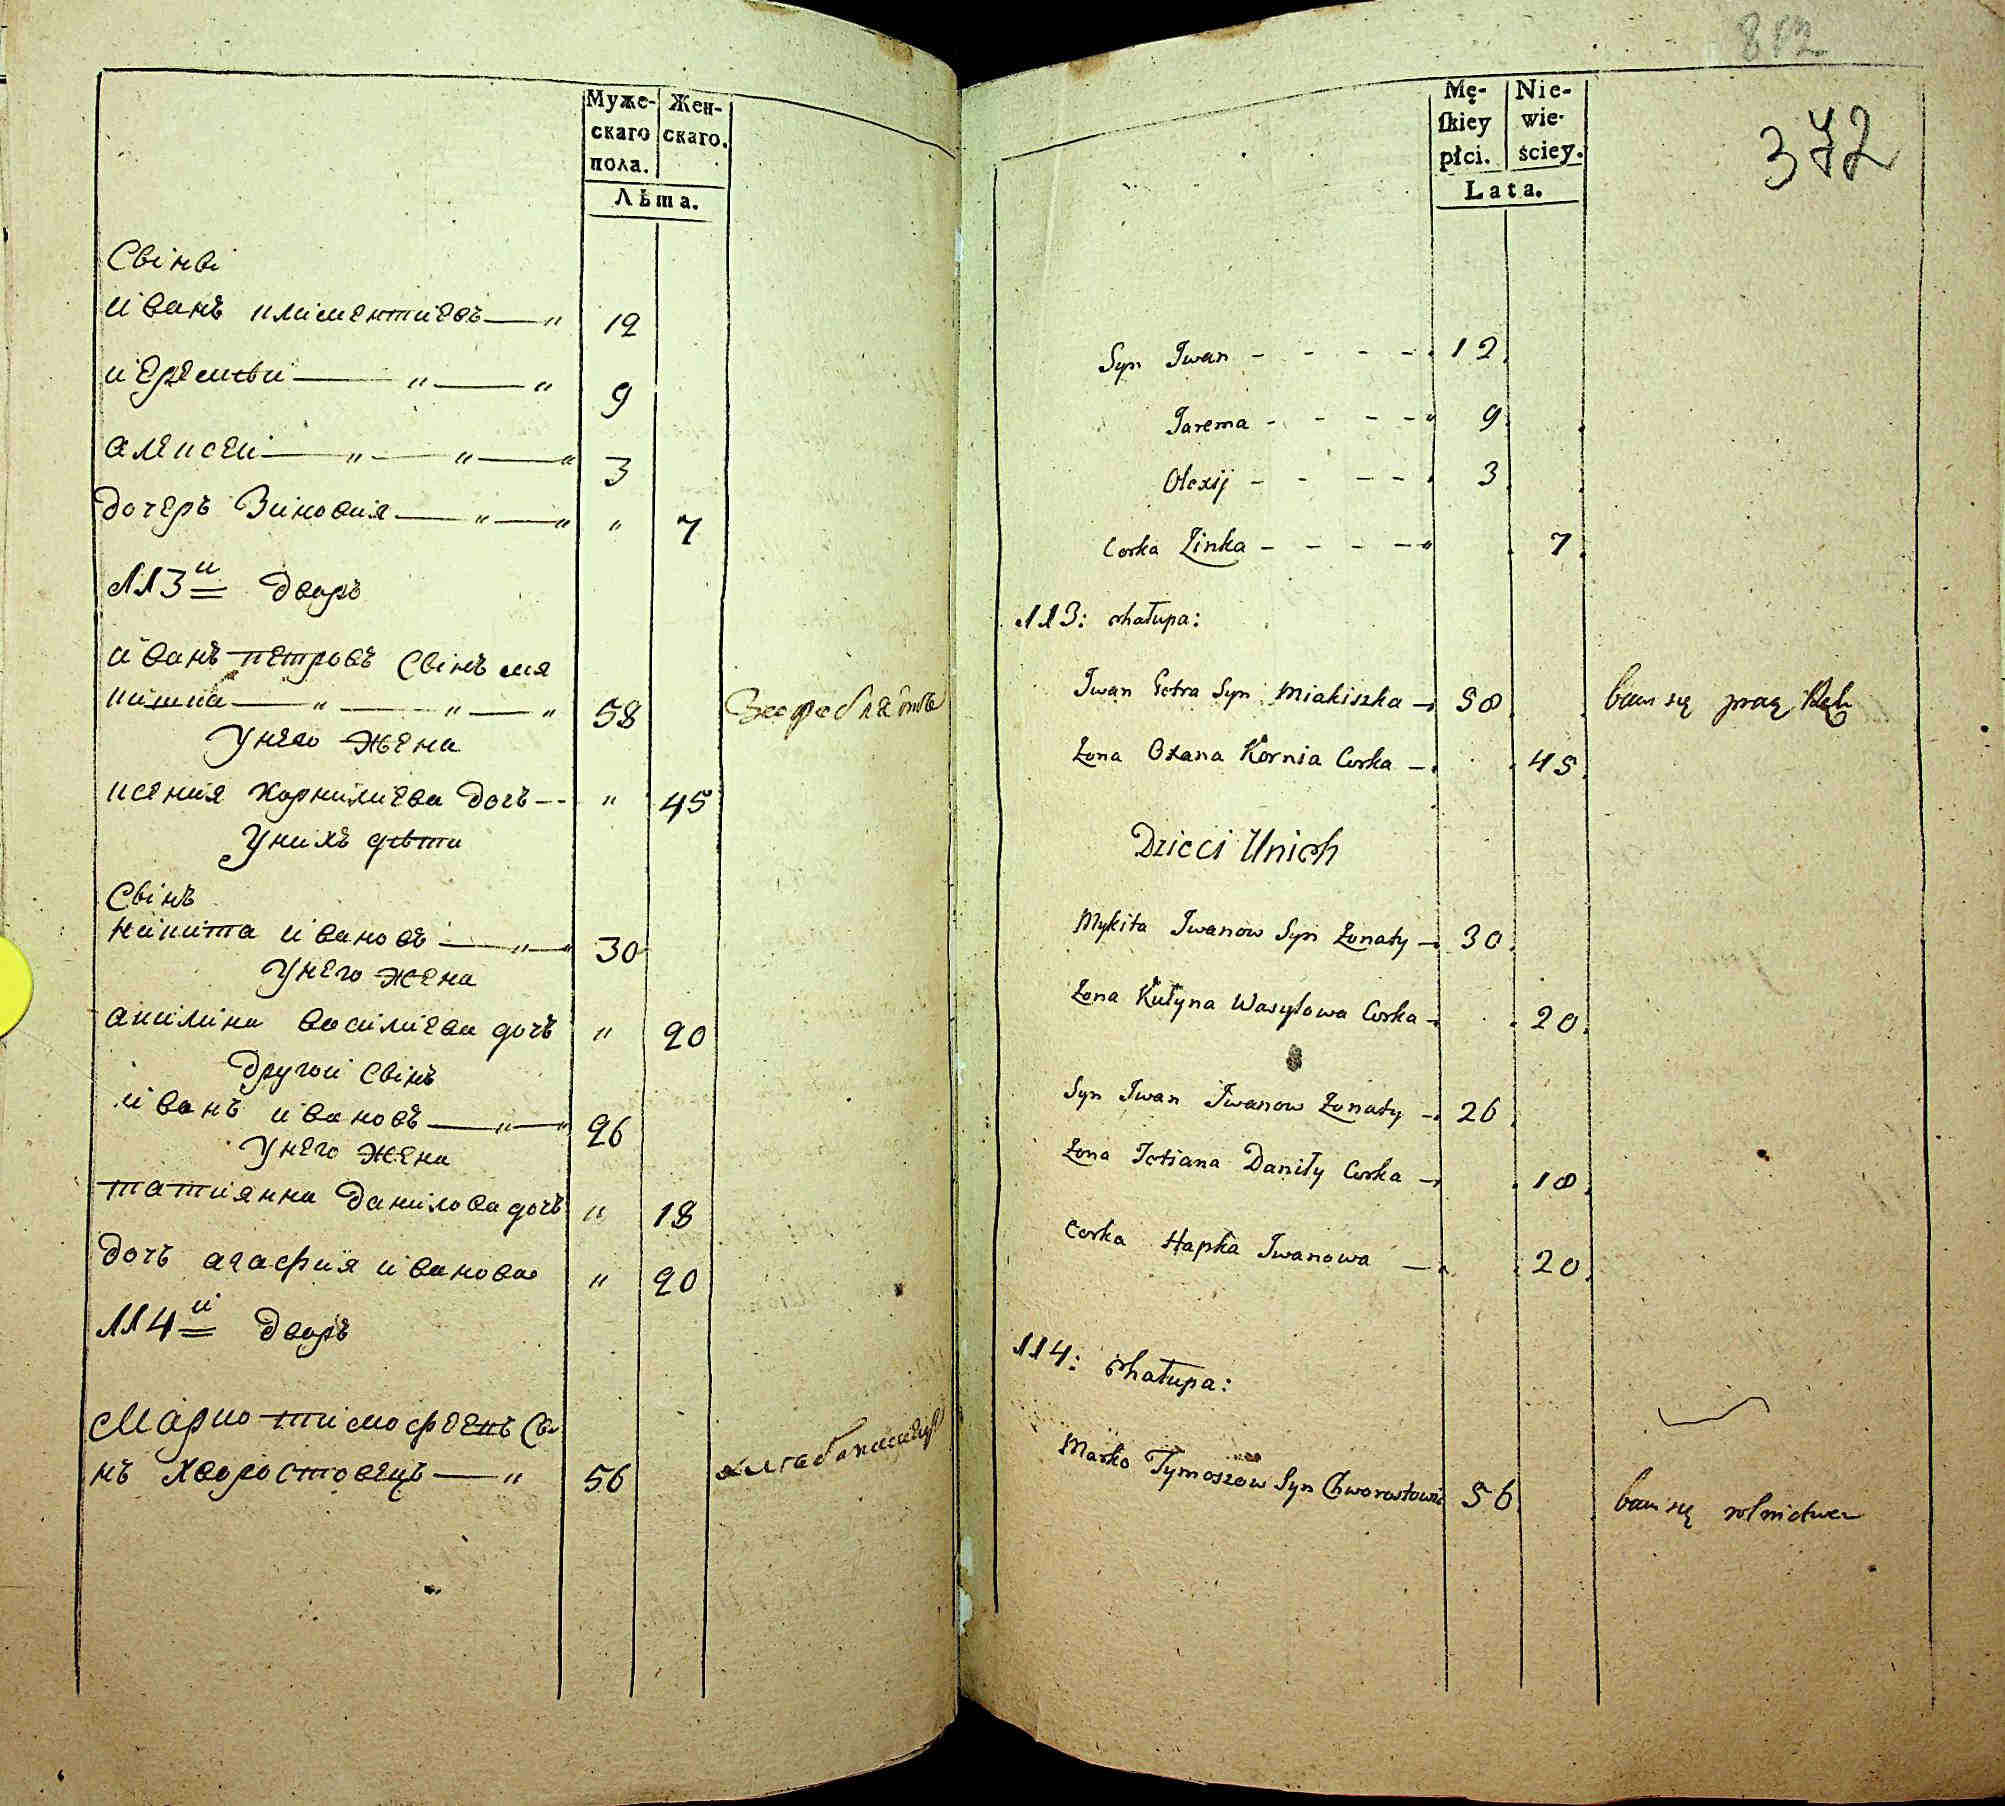 Муже- Жен-
скаго скаго.
пола.
Лѣта.
Свінві
иванъ климентиевъ — " 12
иеремѣи — " — " 9
алексеи — " — " — " 3
дочеръ Зиновия — " — " " 7
113й дворъ
иванъ петровъ Свінъ мя
кишка — " — " — " 58
У него жена
ксения корнилиева дочь -- " 45
У нихъ дѣти
Свінъ
никита ивановъ — " — " 30
У него жена
акилина василиева дочь " 20
Другои Свінъ
иванъ ивановъ — " — " 26
У него жена
татиянна данилова дочь " 18
дочь агафия иванова " 20
114й дворъ
Марко тимофеевъ Св
нъ хворостовецъ — " 56
812
372
Mę- Nie-
ſkiey wie-
płci. ściey.
Lata.
Syn Iwan - - - - 12
Jarema - - - - 9
Olexij - - - - 3
Corka Zinka - - - - 7
113: chałupa:
Iwan Petra Syn Miakiszka — 58 bawi się pracą
Zona Oxana Kornia Corka — 45
Dzieci Unich
Mykita Iwanow Syn Zonaty — 30
Zona Kułyna Wasylowa Corka — 20
Syn Iwan Iwanow Zonaty — 26
Zona Tatiana Daniły Corka — 18
Corka Hapka Iwanowa — 20
114: chałupa:
Marko Tymoszow Syn Chworostowiec 56 bawi się rolnictwem